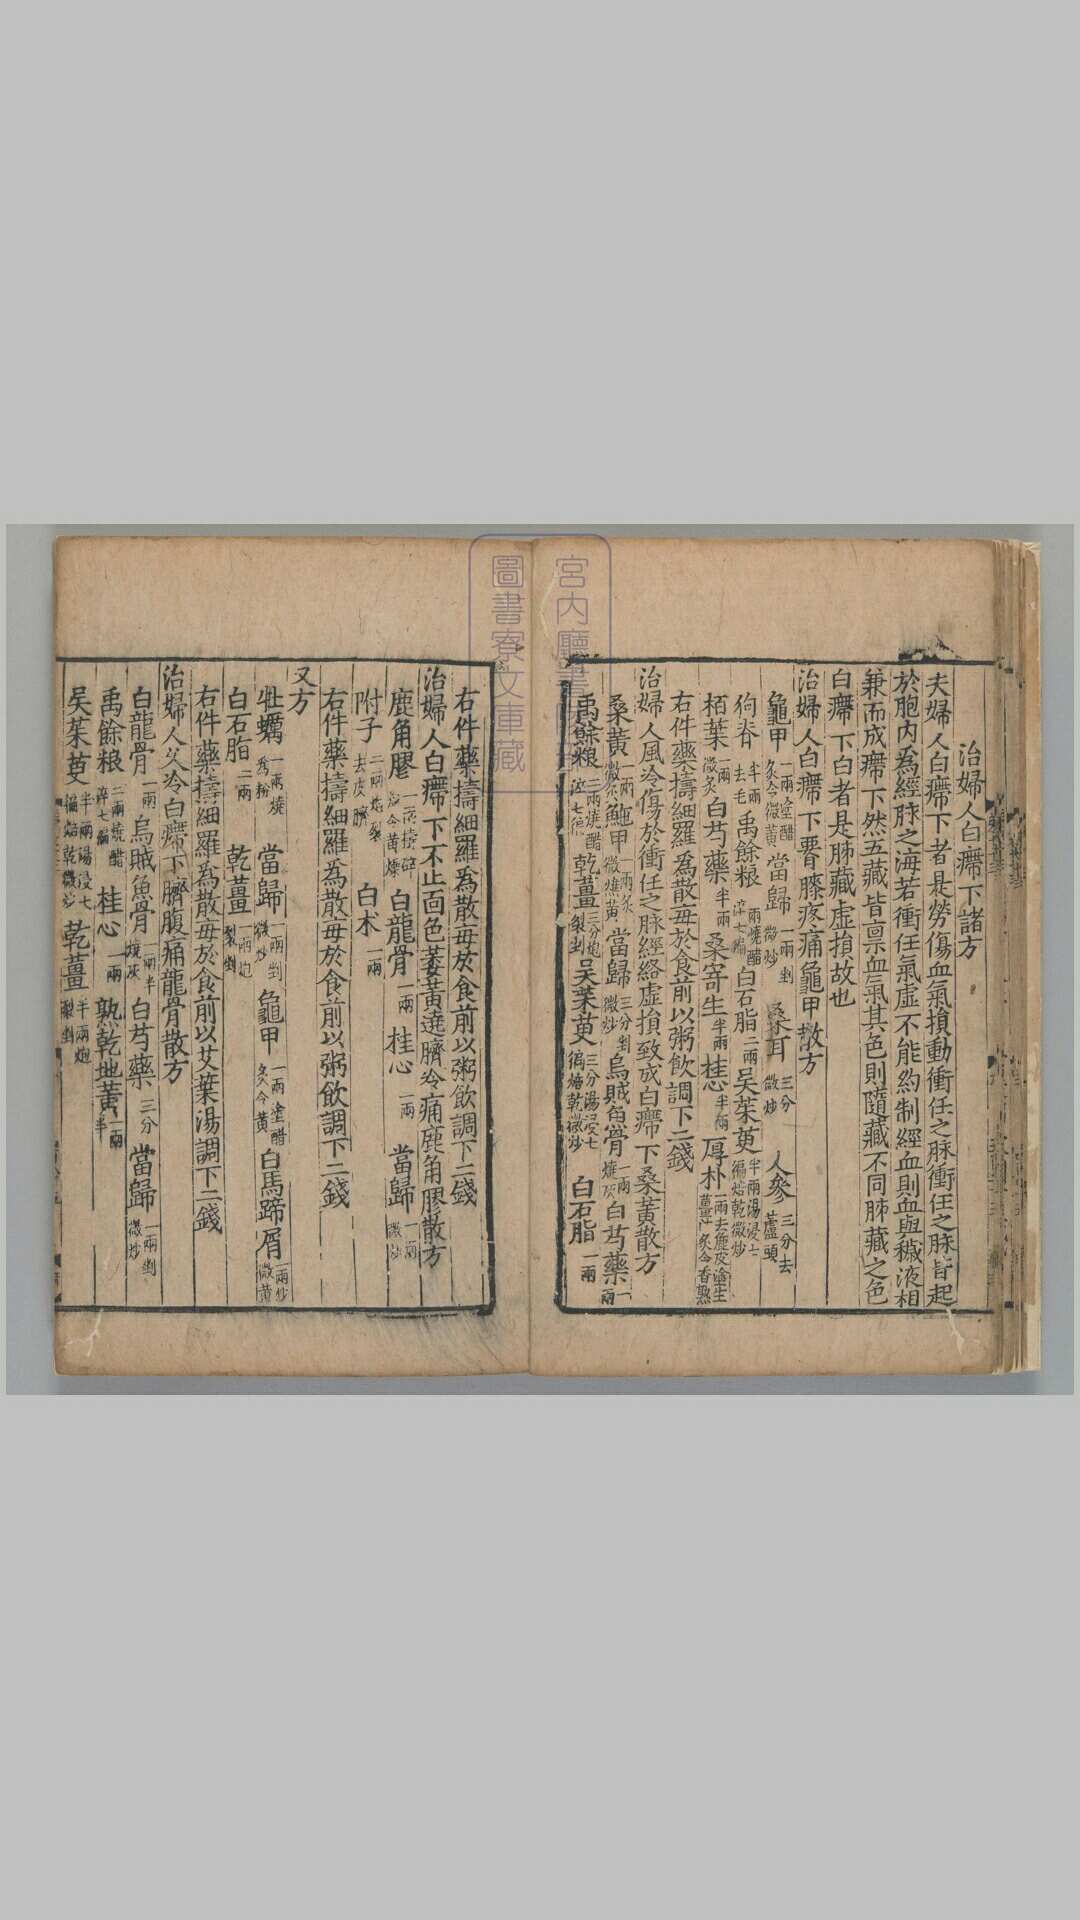 治婦人白㿃下諸方
夫婦人白㿃下者是勞傷血氣損動衝任之脉衝任之脉皆起
於胞內為經脉之海若衝任氣虛不能約制經血則血與穢液相
兼而成㿃下然五藏皆禀血氣其色則隨藏不同肺藏之色
白㿃下白者是肺藏虛損故也
治婦人白㿃下腰膝疼痛龜甲散方
龜甲一兩塗醋炙令微黃 當歸一兩剉微炒 桑耳三分微炒 人參三分去蘆頭
狗脊半兩去毛 禹餘粮一兩燒醋淬七遍 白石脂二兩 吳茱萸半兩湯浸七徧焙乾微炒
栢葉一兩微炙 白芍藥半兩 桑寄生半兩 桂心半兩 厚朴一兩去麁皮塗生薑汁炙令香熟
右件藥擣細羅為散每於食前以粥飲調下二錢
治婦人風冷傷於衝任之脉經絡虛損致成白㿃下桑黃散方
桑黃一兩微炒 鮀甲一兩炙微燋黃 當歸三分剉微炒 烏賊魚骨一兩燒灰 白芍藥一兩
禹餘粮二兩燒醋淬七徧 乾薑三分炮裂剉 吳茱萸三分湯浸七徧焙乾微炒 白石脂一兩
右件藥擣細羅為散每於食前以粥飲調下二錢
治婦人白㿃下不止面色萎黃遶臍冷痛鹿角膠散方
鹿角膠一兩擣碎炒令黃燥 白龍骨一兩 桂心一兩 當歸一兩微炒
附子二兩炮裂去皮臍 白朮一兩
右件藥擣細羅為散每於食前以粥飲調下二錢
又方
牡蠣一兩燒為粉 當歸一兩剉微炒 龜甲一兩塗醋炙令黃 白馬蹄屑一兩炒微黃
白石脂二兩 乾薑一兩炮裂剉
右件藥擣細羅為散每於食前以艾葉湯調下二錢
治婦人久冷白㿃下臍腹痛龍骨散方
白龍骨一兩 烏賊魚骨一兩半燒灰 白芍藥三分 當歸一兩剉微炒
禹餘粮二兩燒醋淬七徧 桂心一兩 熟乾地黃一兩半
吳茱萸半兩湯浸七徧焙乾微炒 乾薑半兩炮裂剉
圖書寮文庫藏